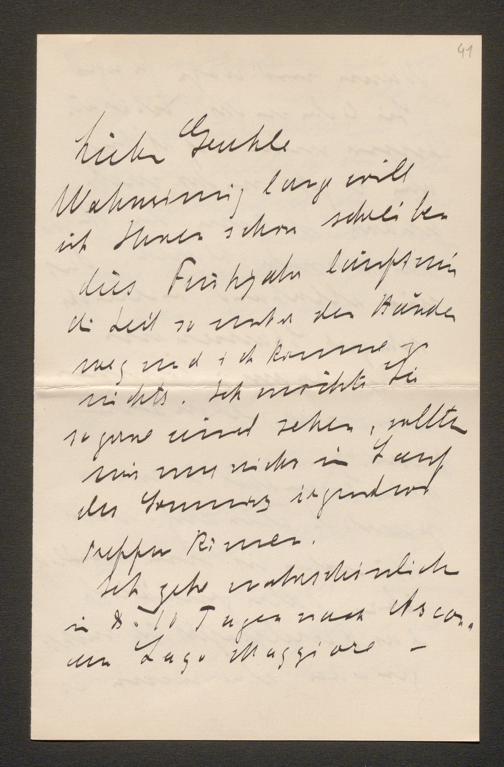 41
Lieber
Wahnsinnig lang will
ich Ihnen schon schreiben
dies Frühjahr läuft mir
die Zeit so unter den Händen
weg und ich komme zu
nichts. Ich möchte Sie
so gerne einmal sehen, sollten
wir uns nicht im Lauf
des Sommers irgendwo
treffen können.
Ich gehe wahrscheinlich
in 8-10 Tagen nach Ascona
am Lago Maggiore –